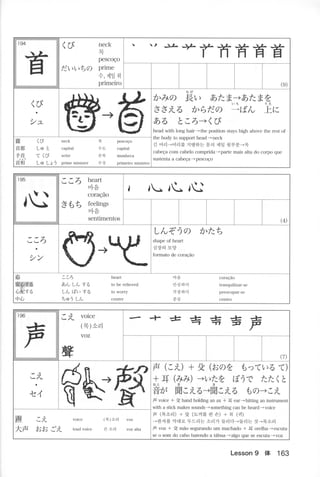 194
首
くび
だいいちの
neck
목
pescoço
prime
수, 제일의
primeiro
(9)
くび
・
シュ
かみの 長い あたま→あたまを
ささえる からだの 一ばん 上に
ある ところ→くび
body with long hair → the position stays high above the rest of
the body to support head → neck
cabeça com cabelo comprido → parte mais alta do corpo que
sustenta a cabeça → pescoço
首 くび neck 목 pescoço
首都 しゅと capital 수도 capital
手首 てくび wrist 손목 munheca
首相 しゅしょう prime minister 수상 primeiro ministro
195
心
こころ
きもち
heart
마음
coração
feelings
마음
sentimentos
(4)
こころ
・
シン
しんぞうの かたち
shape of heart
심장의 모양
formato de coração
心 こころ heart 마음 coração
安心する あんしんする to be relieved 안심하다 tranquilizar-se
心配する しんぱいする to worry 걱정하다 preocupar-se
中心 ちゅうしん center 중심 centro
196
声
こえ
voice
(목)소리
voz
聲
(7)
こえ
・
セイ
声 (こえ) + 殳 (おのを もっている て)
+ 耳 (みみ) →いたを ぼうで たたくと
音が 聞こえる→聞こえる もの→こえ
声 voice + 殳 hand holding an ax + 耳 ear → hitting an instrument
with a stick makes sounds → something can be heard → voice
声 voz + 殳 mão segurando um machado + 耳 orelha → escuta-
se o som do cabo batendo a tábua → algo que se escuta → voz
声 こえ voice (목)소리 voz
大声 おおごえ loud voice 큰 소리 voz alta
Lesson 9 体 163